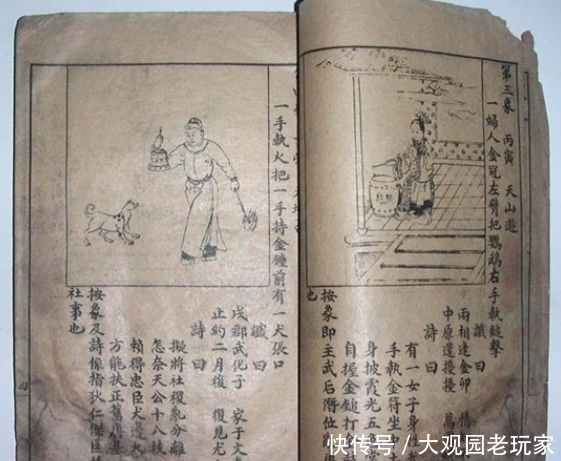 第三象 丙寅 天山遯
一婦人金冠左臂把鸚鵡右手執鎚擊
讖曰
兩相達金卯 情
中原還擾擾 萬
詩曰
有一女子身
手執金符坐中
身披霞光五
自握金鎚打
按象即主武后潛位
也
一手執火把一手持金鐘前有一犬張口
讖曰
戌郡武化子 家于文
止約二月後 復見尤
詩曰
擬將社稷亂分離
怎奈天公十八枝
賴得忠臣犬邊火
方能扶正舊唐基
按象及詩係指狄仁傑匡
社事也
快传号 / 大观园老玩家